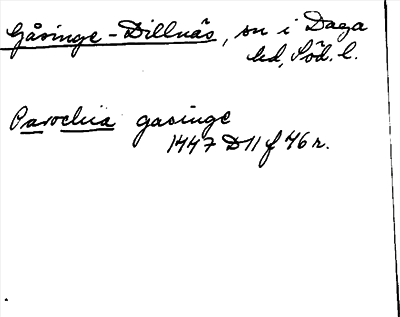 Gåsinge-Dillnäs, sn i Daga
hd, Söd. l.
Parochia gasinge
1447 D11 f 46 r.